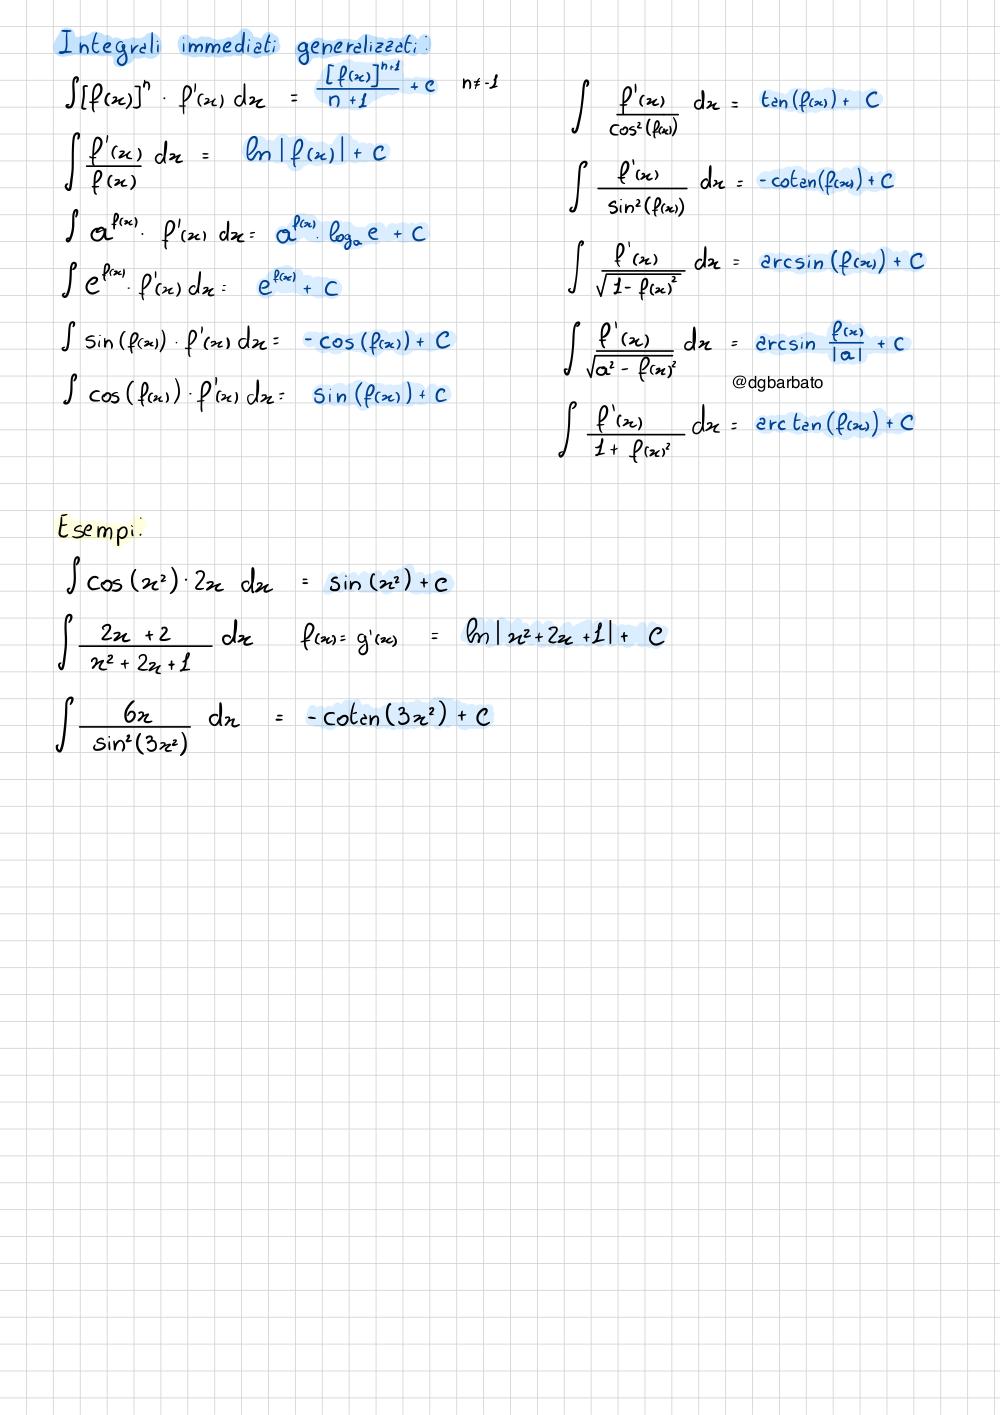 Integrali immediati generalizzati:
∫[f(x)]ⁿ · f'(x) dx = [f(x)]ⁿ⁺¹ / n+1 + c   n≠-1
∫ f'(x) / f(x) dx = ln|f(x)| + c
∫ a^f(x) · f'(x) dx = a^f(x) · logₐ e + c
∫ e^f(x) · f'(x) dx = e^f(x) + c
∫ sin(f(x)) · f'(x) dx = -cos(f(x)) + c
∫ cos(f(x)) · f'(x) dx = sin(f(x)) + c
∫ f'(x) / cos²(f(x)) dx = tan(f(x)) + c
∫ f'(x) / sin²(f(x)) dx = -cotan(f(x)) + c
∫ f'(x) / √(1 - f(x)²) dx = arcsin(f(x)) + c
∫ f'(x) / √(a² - f(x)²) dx = arcsin f(x) / |a| + c
@dgbarbato
∫ f'(x) / 1 + f(x)² dx = arctan(f(x)) + c
Esempi:
∫ cos(x²) · 2x dx = sin(x²) + c
∫ 2x + 2 / x² + 2x + 1 dx   f(x) = g'(x) = ln|x² + 2x + 1| + c
∫ 6x / sin²(3x²) dx = -cotan(3x²) + c